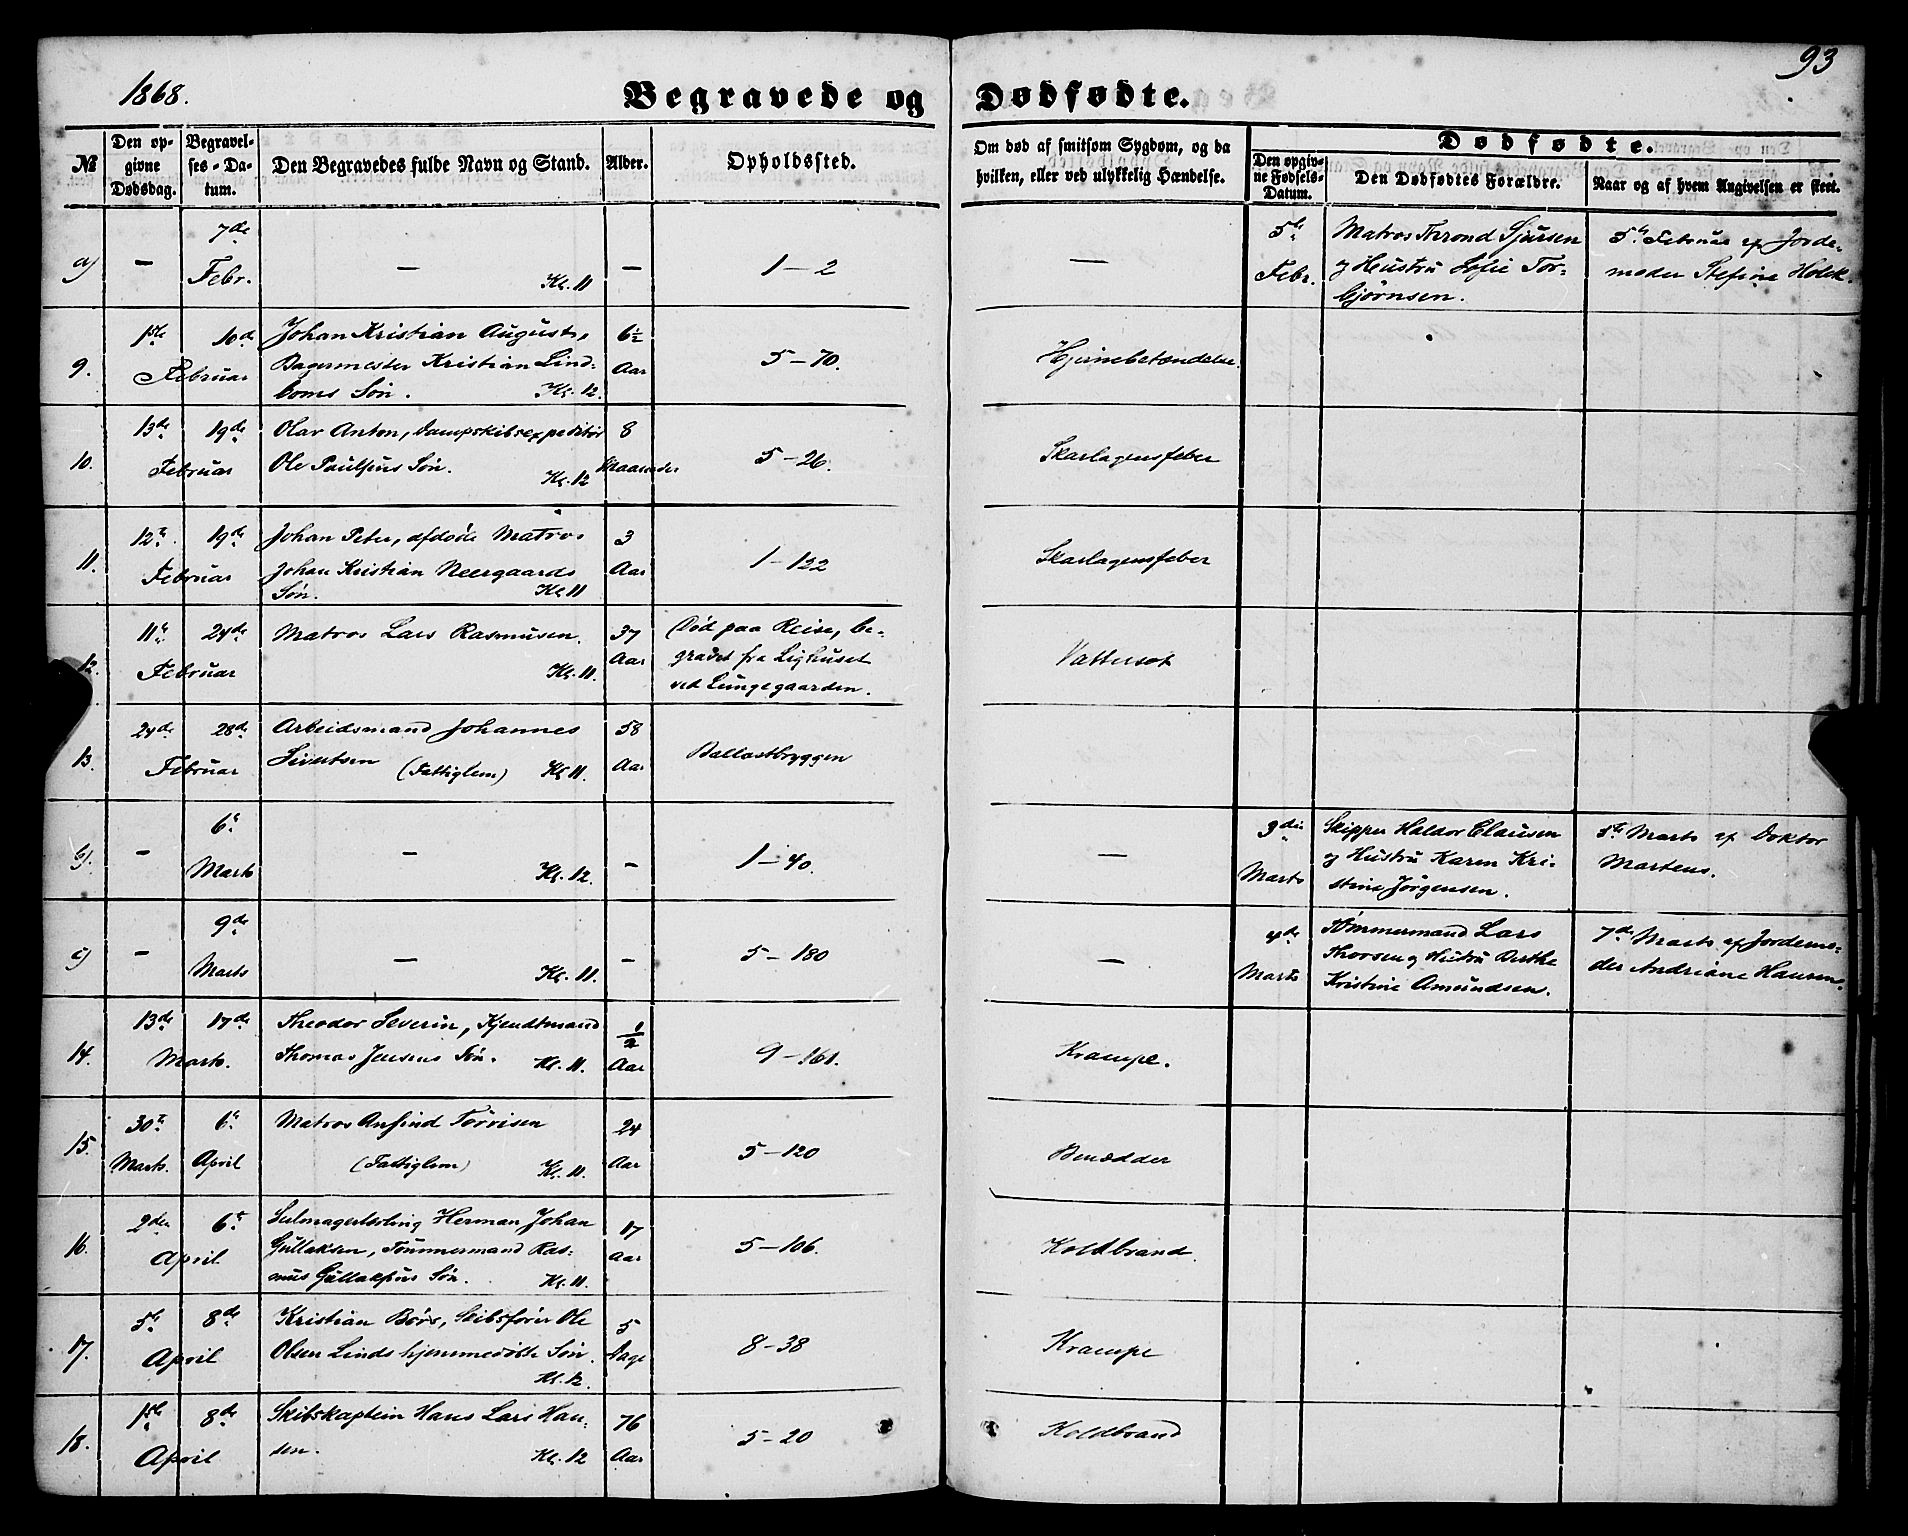 93
1868.
Begravede og Dødfødte.
№
Den op-
givne
Dødsdag.
Begravel-
ses-Da-
tum.
Den Begravedes fulde Navn og Stand.
Alder.
Opholdssted.
Om død af smitsom Sygdom, og da
hvilken, eller ved ulykkelig Hændelse.
Dødfødte.
Den opgiv-
ne Fødsels-
Datum.
Den Dødfødtes Forældre.
Naar og af hvem Angivelsen er skeet.
a) — 7de Febr. — Kl. 11 — 1-2 —
5te Febr.
Matros Thrond Sjursen
og Hustru Sofie Tor-
bjørnsen.
5te Februar af Jorde-
moder Stefine Holck.
9. 1ste 10de Februar
Johan Kristian August,
Bagermester Kristian Lind-
boms Søn. Kl. 12.
6½ Aar
5-70.
Hjernebetændelse.
10. 13de 19de Februar
Olav Anton, Dampskibsexpeditør
Ole Paulsens Søn. Kl. 12
8 Maaneder
5-26.
Skarlagensfeber
11. 12te 19de Februar
Johan Peter, afdøde Matros
Johan Kristian Neergaards
Søn. Kl. 11
3 Aar
1-122
Skarlagensfeber
12. 11te 24de Februar
Matros Lars Rasmusen.
Kl. 11.
37 Aar
Død paa Reise, be-
gravet fra Lighuset
ved Lungegaarden.
Vattersot
13. 24de 28de Februar
Arbeidsmand Johannes
Sivertsen (Fattiglem) Kl. 11.
58 Aar
Ballastbryggen
b). — 6te Marts — Kl. 12. — 1-40. —
3die Marts
Skipper Haldor Clausen
og Hustru Karen Kri-
stine Jørgensen.
5te Marts af Doktor
Martens.
c) — 9de Marts — Kl. 11. — 5-180 —
4de Marts
Tømmermand Lars
Thorsen og Hustru Berthe
Kristine Amundsen.
7de Marts af Jordemo-
der Andriane Hansen.
14. 13de 17de Marts.
Theodor Severin, Kjendtmand
Thomas Jensens Søn. Kl. 11.
½ Aar
9-161.
Krampe.
15. 30te Marts. 6te April
Matros Anfind Tørrisen
(Fattiglem) Kl. 11.
24 Aar
5-120
Benedder
16. 2den 6te April
Seilmagerlærling Herman Johan
Gullaksen, Tømmermand Ras-
mus Gullaksens Søn. Kl. 11.
17 Aar
5-106.
Koldbrand.
17. 5te 8de April
Kristian Børs, Skibsfører Ole
Olsen Linds hjemmedøbte Søn.
Kl. 12.
5 Dage
8-38
Krampe
18. 1ste 8de April
Skibskaptein Hans Lars Han-
sen. Kl. 12
76 Aar
5-20
Koldbrand